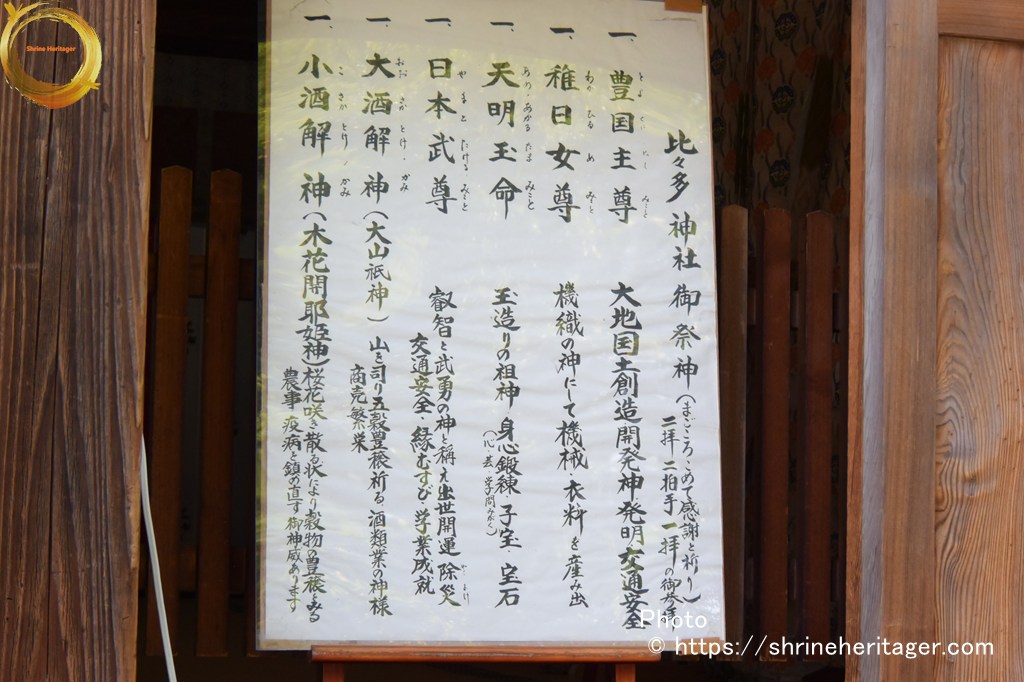 比々多神社御祭神(まごころこめて感謝と祈り)
二拝二拍手一拝の御参拝
一、豊国主尊 大地国土創造開発神発明、交通安全
一、稚日女尊 機織の神にして機械・衣料を産み出
わか ひる め みこと
一、天明玉命 玉造りの祖神 身心鍛練 子宝・宝石
あめ・あかる たま みこと
(心・芸 学問みがく)
一、日本武尊 叡智と武勇の神と称え出世開運 除災
やま と たける みこと
交通安全・縁むすび・学業成就
一、大酒解神(大山祇神) 山を司り五穀豊穣祈る、酒類業の神様
おお さか とけ・かみ
商売繁栄
一、小酒解神(木花開耶姫神)桜花咲き散る状により穀物の豊穣をみる
こ さか とけ・かみ
農事 疫病を鎮め直す御神威あります
Shrine Heritager
Photo
© https://shrineheritager.com